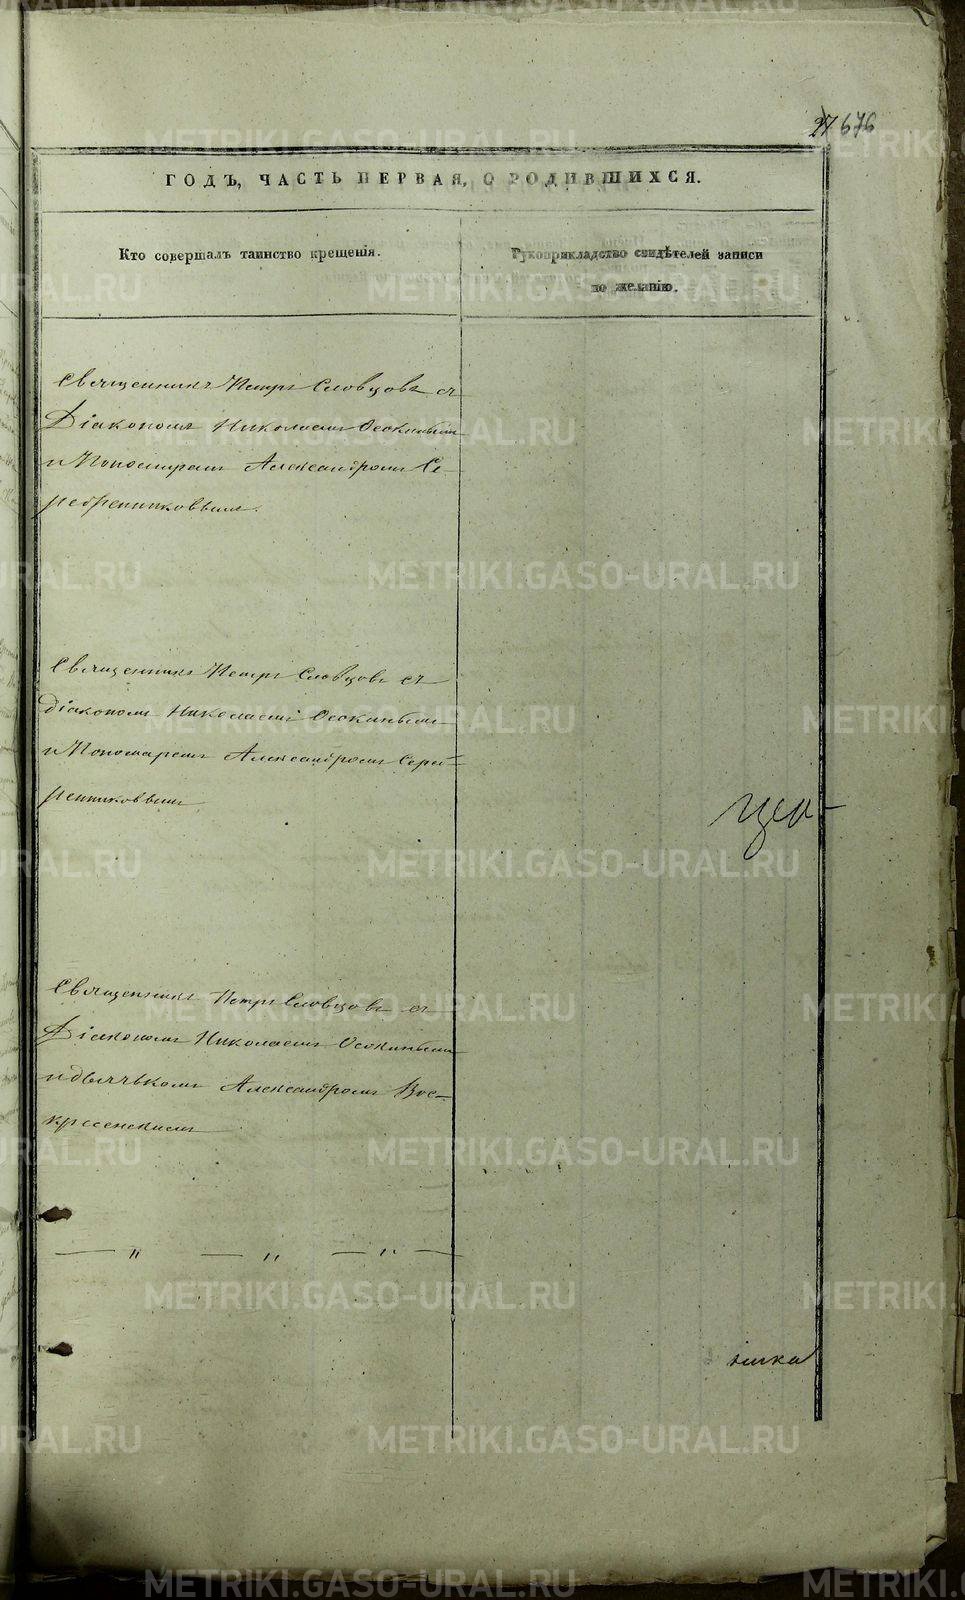 27 676
ГОДЪ, ЧАСТЬ ПЕРВАЯ, О РОДИВШИХСЯ.
Кто совершалъ таинство крещенія.
Рукоприкладство свидѣтелей записи
по желанію.
Священникъ Петръ Словцовъ съ
Діакономъ Николаемъ Осокинымъ
и Пономаремъ Александромъ Се-
ребренниковымъ.
Священникъ Петръ Словцовъ съ
діакономъ Николаемъ Осокинымъ
и Пономаремъ Александромъ Сереб-
ренниковымъ
Священникъ Петръ Словцовъ съ
Діакономъ Николаемъ Осокинымъ
и дьячькомъ Александромъ Вос-
кресенскимъ
— " — " — " —
METRIKI.GASO-URAL.RU